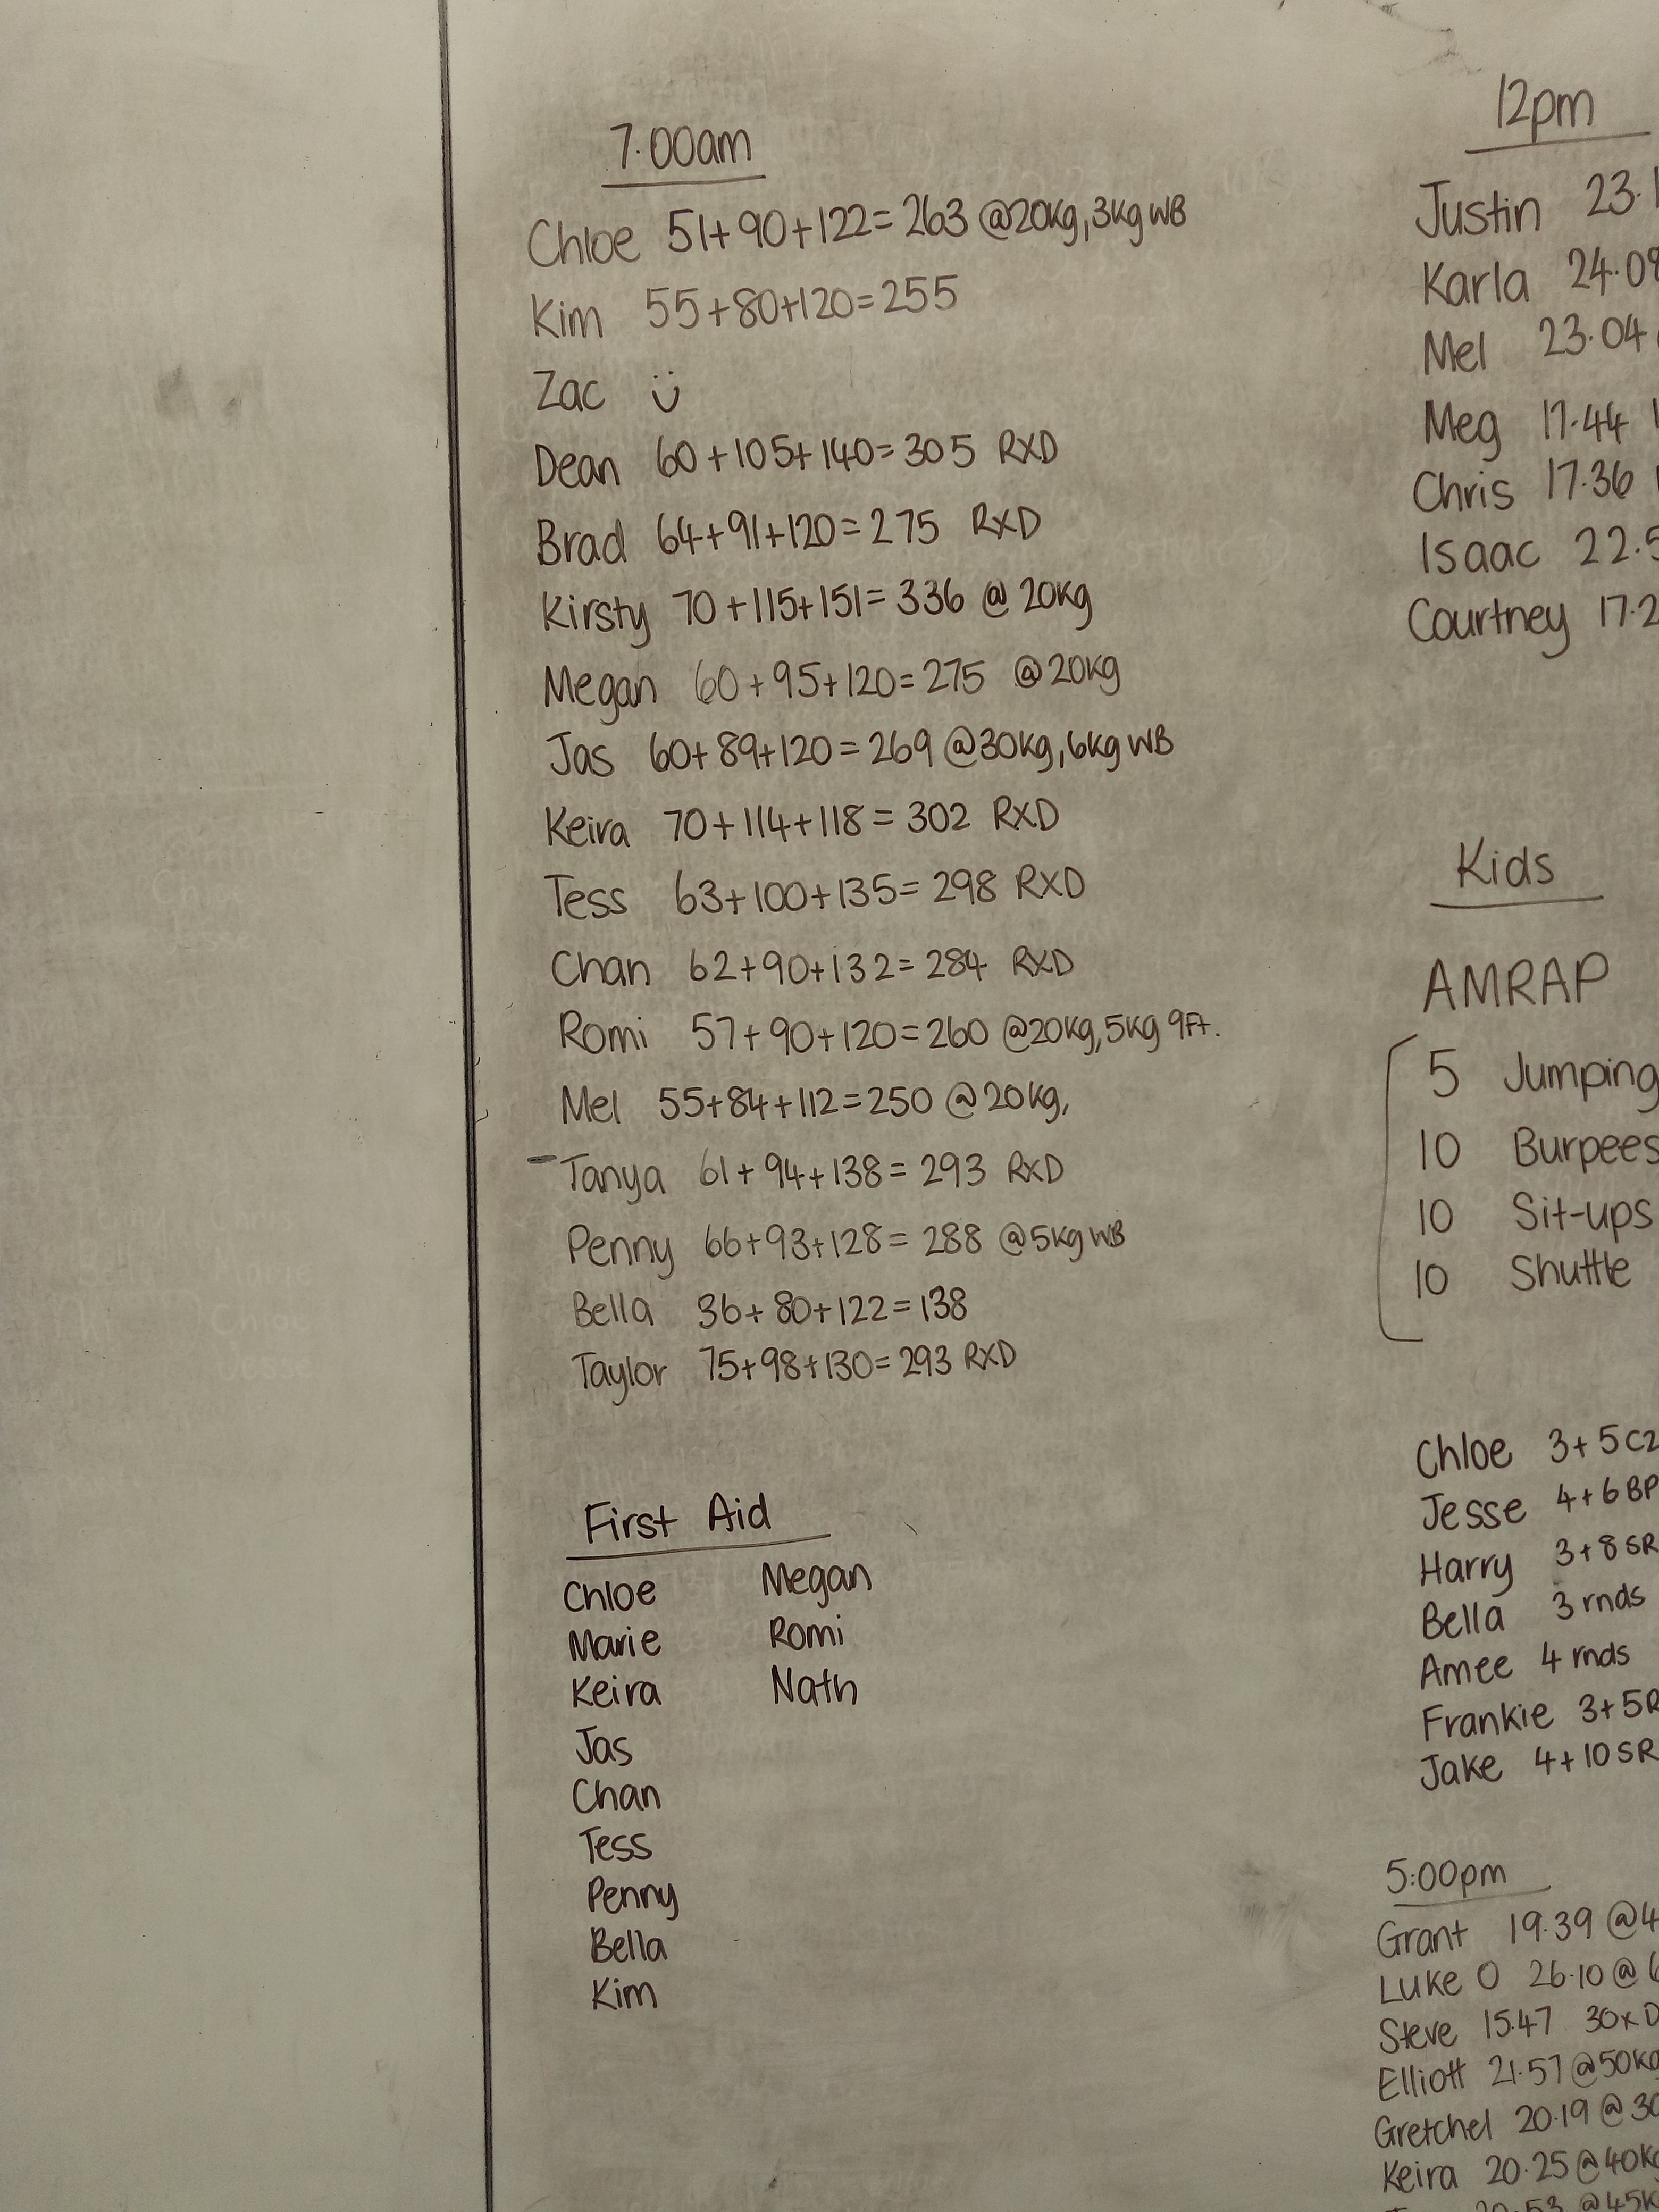 7.00am
Chloe 51+90+122=263 @20kg,3kg WB
Kim 55+80+120=255
Zac Ü
Dean 60+105+140=305 RXD
Brad 64+91+120=275 RXD
Kirsty 70+115+151=336 @ 20kg
Megan 60+95+120=275 @20kg
Jas 60+89+120=269 @30kg,6kg WB
Keira 70+114+118=302 RXD
Tess 63+100+135=298 RXD
Chan 62+90+132=284 RXD
Romi 57+90+120=260 @20kg,5kg 9Ft.
Mel 55+84+112=250 @20kg,
Tanya 61+94+138=293 RXD
Penny 66+93+128=288 @5kg WB
Bella 36+80+122=138
Taylor 75+98+130=293 RXD
First Aid
Chloe Megan
Marie Romi
Keira Nath
Jas
Chan
Tess
Penny
Bella
Kim
12pm
Justin 23.1
Karla 24.09
Mel 23.04
Meg 17.44
Chris 17.36
Isaac 22.5
Courtney 17.2
Kids
AMRAP
5 Jumping
10 Burpees
10 Sit-ups
10 Shuttle
Chloe 3+5C2
Jesse 4+6BP
Harry 3+8SR
Bella 3 rnds
Amee 4 rnds
Frankie 3+5R
Jake 4+10SR
5:00pm
Grant 19.39 @4
Luke O 26.10 @6
Steve 15.47 30xD
Elliott 21.57 @50kg
Gretchel 20.19 @30
Keira 20.25 @40kg